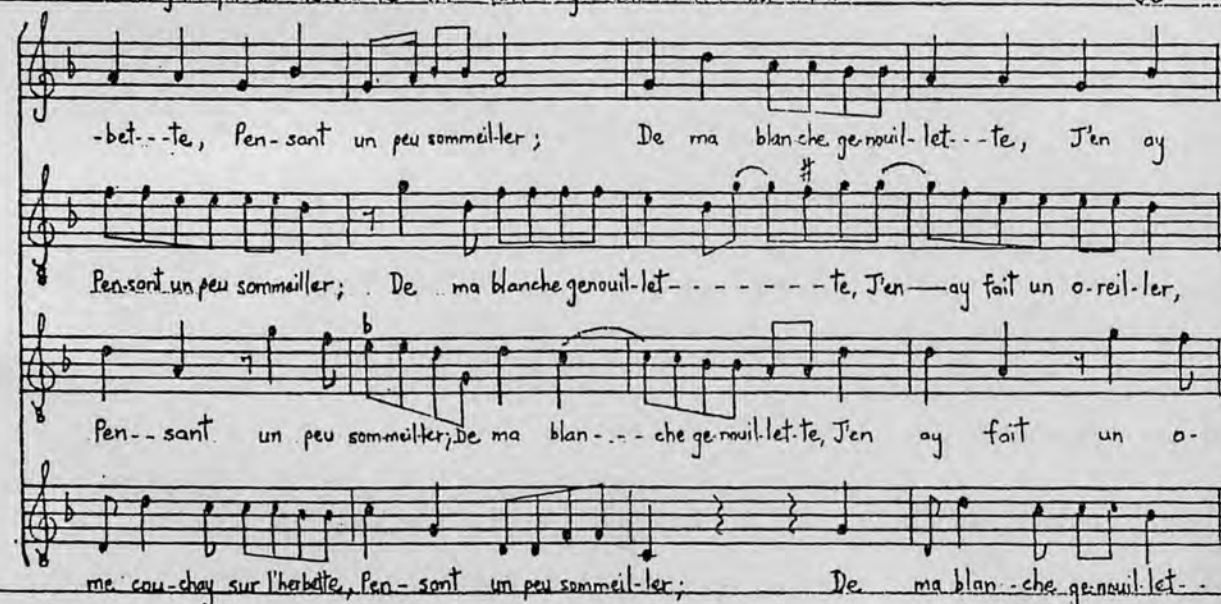 -bet---te, Pen-sant un peu sommeil-ler; De ma blan-che ge-nouil-let---te, J'en ay
Pen-sant un peu sommeiller; De ma blanche genouil-let- - - - - - - -te, J'en—ay fait un o-reil-ler,
Pen--sant un peu som-meil-ler; De ma blan-.-- che ge-nouil-let-te, J'en ay fait un o-
me cou-chay sur l'herbette, Pen-sant un peu sommeil-ler; De ma blan--che ge-nouil-let--